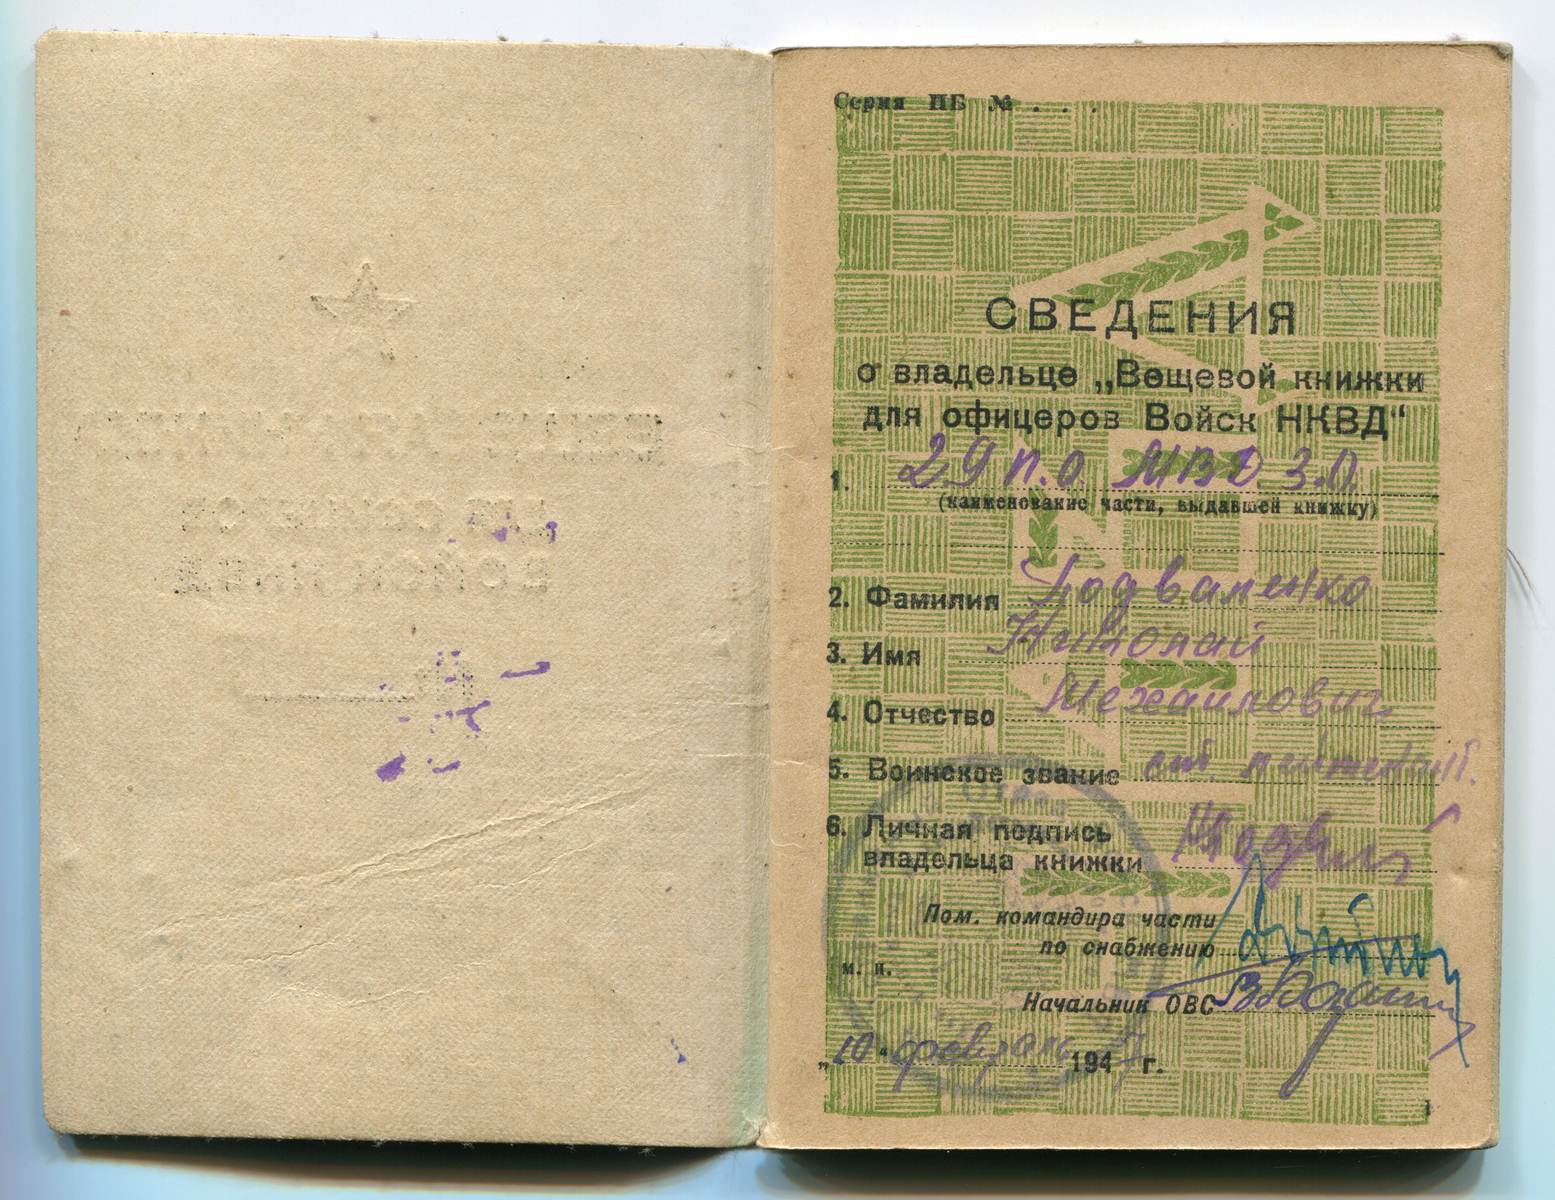 Серия ПБ № . . .
СВЕДЕНИЯ
о владельце „Вещевой книжки
для офицеров Войск НКВД“
1. 29 п.о. МВД З.О.
(наименование части, выдавшей книжку)
2. Фамилия Подваленко
3. Имя Николай
4. Отчество Михайлович
5. Воинское звание лейтенант
6. Личная подпись
владельца книжки
Пом. командира части
по снабжению
м. п.
Начальник ОВС
„10“ февраля 1947 г.
1